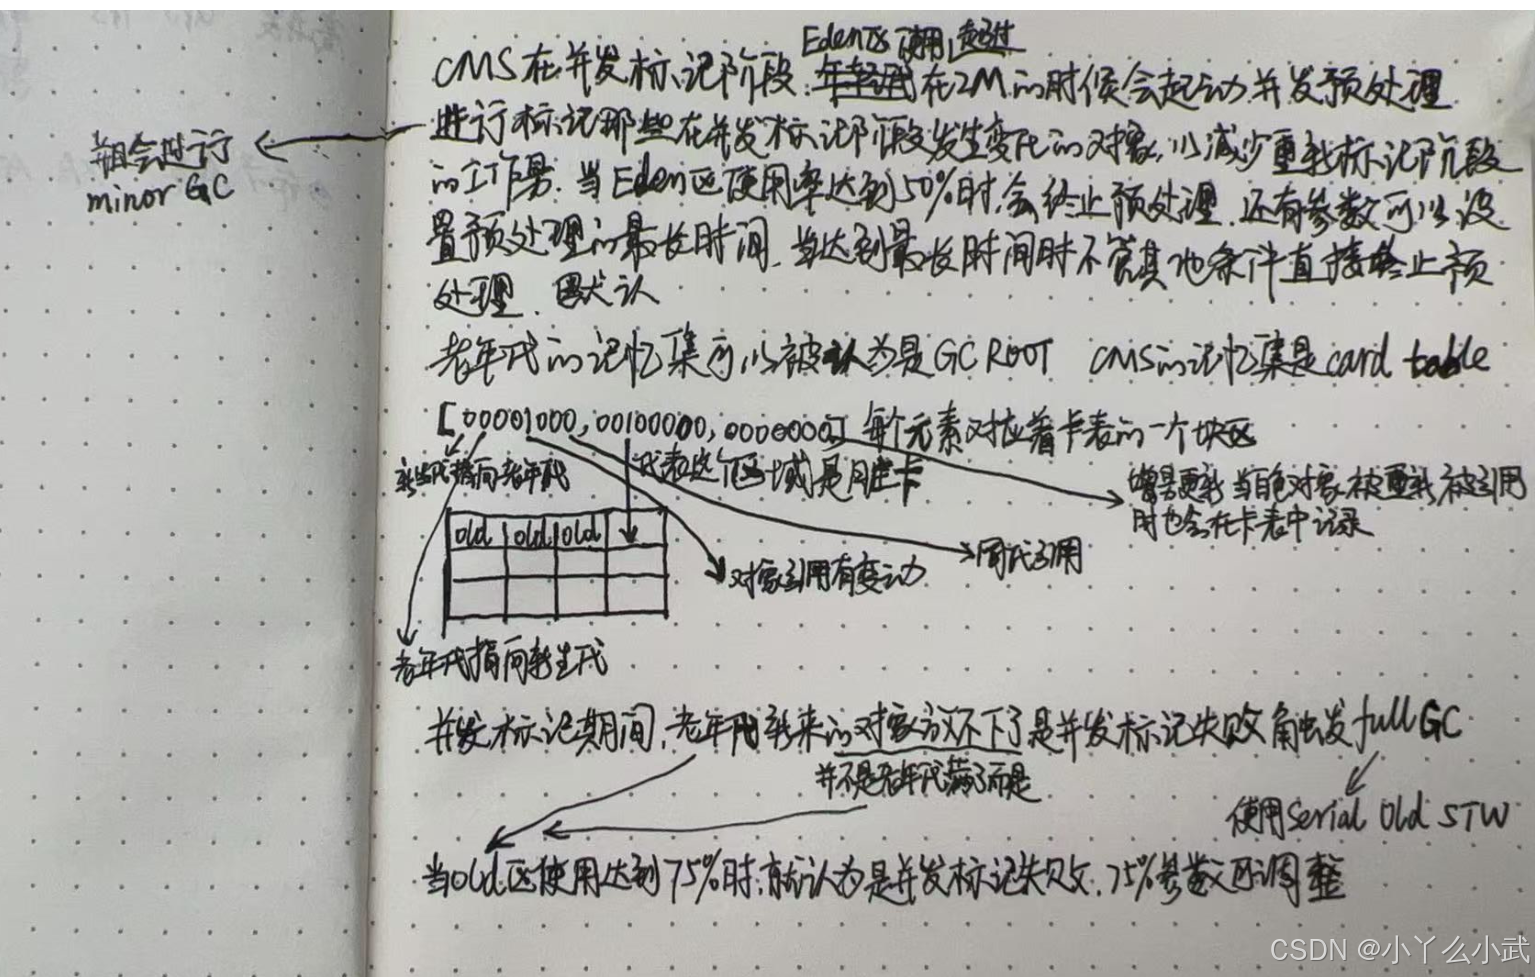 Eden区使用超过
CMS在并发标记阶段.年轻代在2M的时候会起动并发预处理
进行标记那些在并发标记阶段发生变化的对象,以减少重新标记阶段
并且会进行
minor GC
的工作量.当Eden区使用率达到50%时,会终止预处理.还有参数可以设
置预处理的最长时间,当达到最长时间时不管其他条件直接终止预
处理.默认
老年代的记忆集可以被认为是GC ROOT CMS的记忆集是card table
[00001000,00100000,00000000] 每个元素对应着卡表的一个块区
新生代指向老年代
代表这个区域是脏卡
增量更新 当白色对象被重新被引用
时也会在卡表中记录
old old old
对象引用有变动
同代引用
老年代指向新生代
并发标记期间,老年代新来的对象放不下了是并发标记失败 触发full GC
并不是老年代满了而是
使用Serial Old STW
当old区使用达到75%时,就认为是并发标记失败.75%参数可调整
CSDN @小丫么小武